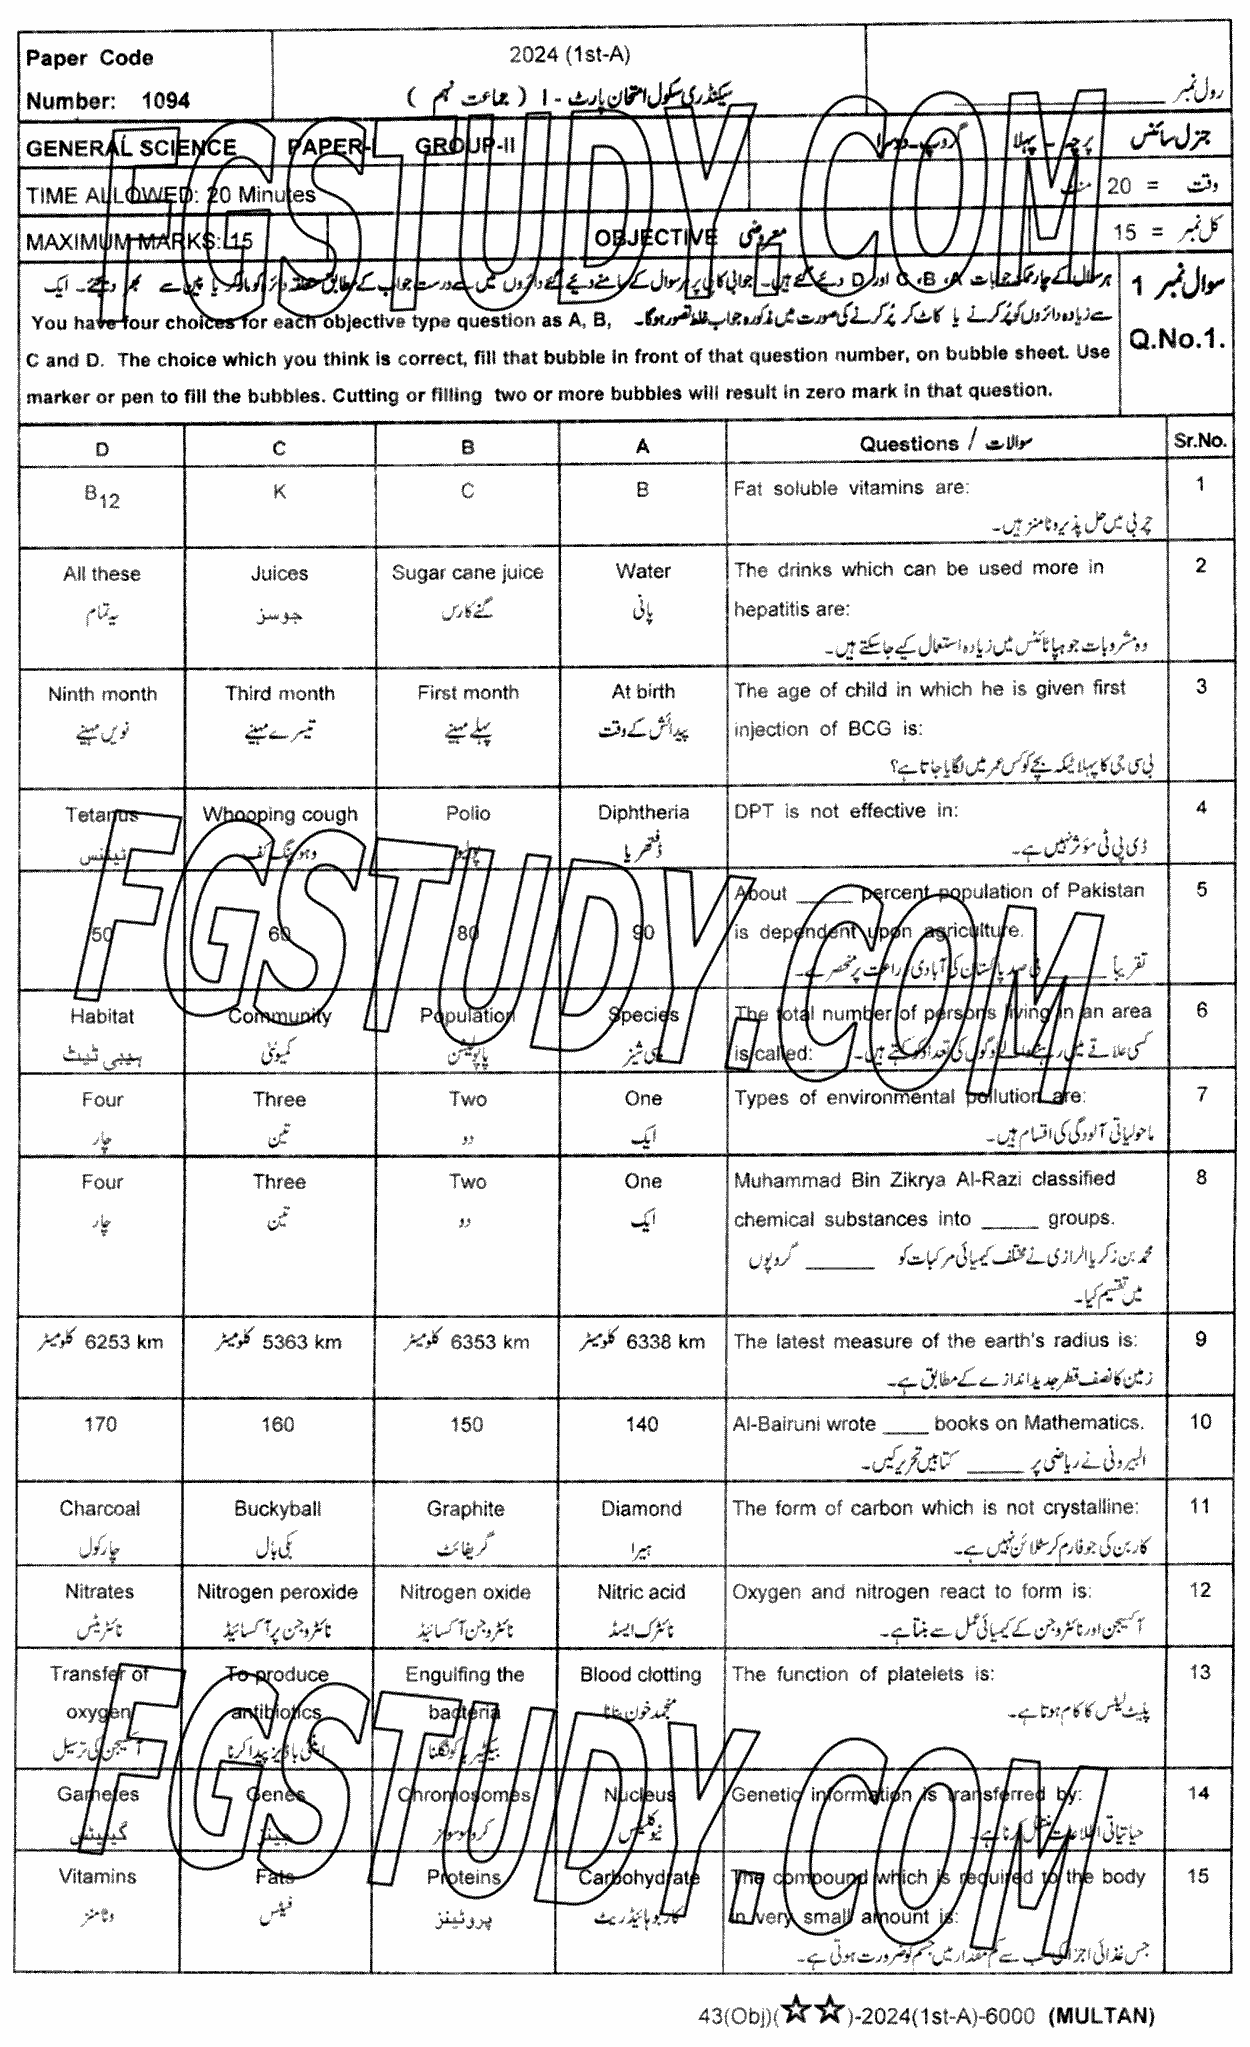 Paper Code
2024 (1st-A)
Number: 1094
سیکنڈری سکول امتحان پارٹ - I ( جماعت نہم )
رول نمبر
GENERAL SCIENCE PAPER-I GROUP-II
گروپ - دوسرا
پرچہ - پہلا
جنرل سائنس
TIME ALLOWED: 20 Minutes
وقت = 20 منٹ
MAXIMUM MARKS: 15
OBJECTIVE معروضی
کل نمبر = 15
سوال نمبر 1
Q.No.1.
ہر سوال کے چار ممکنہ جوابات A، B، C اور D دیئے گئے ہیں۔ جوابی کاپی پر ہر سوال کے سامنے دیئے گئے دائروں میں سے درست جواب کے مطابق متعلقہ دائرہ کو مارکر یا پین سے بھر دیجئے۔ ایک
سے زیادہ دائروں کو پُر کرنے یا کاٹ کر پُر کرنے کی صورت میں مذکورہ جواب غلط تصور ہوگا۔ You have four choices for each objective type question as A, B,
C and D. The choice which you think is correct, fill that bubble in front of that question number, on bubble sheet. Use
marker or pen to fill the bubbles. Cutting or filling two or more bubbles will result in zero mark in that question.
D C B A Questions / سوالات Sr.No.
B12 K C B Fat soluble vitamins are: 1
چربی میں حل پذیر وٹامنز ہیں۔
All these Juices Sugar cane juice Water The drinks which can be used more in 2
یہ تمام جوسز گنے کا رس پانی hepatitis are:
وہ مشروبات جو ہپاٹائٹس میں زیادہ استعمال کیے جا سکتے ہیں۔
Ninth month Third month First month At birth The age of child in which he is given first 3
نویں مہینے تیسرے مہینے پہلے مہینے پیدائش کے وقت injection of BCG is:
بی سی جی کا پہلا ٹیکہ بچے کو کس عمر میں لگایا جاتا ہے؟
Tetanus Whooping cough Polio Diphtheria DPT is not effective in: 4
ٹیٹنس وہوپنگ کف پولیو ڈفتھریا ڈی پی ٹی مؤثر نہیں ہے۔
About _____ percent population of Pakistan 5
50 60 80 90 is dependent upon agriculture.
تقریباً _____ فی صد پاکستان کی آبادی زراعت پر منحصر ہے۔
Habitat Community Population Species The total number of persons living in an area 6
ہیبی ٹیٹ کمیونٹی پاپولیشن سپی شیز is called: کسی علاقے میں رہنے والے لوگوں کی تعداد کو کہتے ہیں۔
Four Three Two One Types of environmental pollution are: 7
چار تین دو ایک ماحولیاتی آلودگی کی اقسام ہیں۔
Four Three Two One Muhammad Bin Zikrya Al-Razi classified 8
چار تین دو ایک chemical substances into _____ groups.
محمد بن زکریا الرازی نے مختلف کیمیائی مرکبات کو _____ گروپوں
میں تقسیم کیا۔
6253 km کلومیٹر 5363 km کلومیٹر 6353 km کلومیٹر 6338 km کلومیٹر The latest measure of the earth's radius is: 9
زمین کا نصف قطر جدید اندازے کے مطابق ہے۔
170 160 150 140 Al-Bairuni wrote ____ books on Mathematics. 10
البیرونی نے ریاضی پر _____ کتابیں تحریر کیں۔
Charcoal Buckyball Graphite Diamond The form of carbon which is not crystalline: 11
چارکول بکی بال گریفائٹ ہیرا کاربن کی جو فارم کرسٹلائن نہیں ہے۔
Nitrates Nitrogen peroxide Nitrogen oxide Nitric acid Oxygen and nitrogen react to form is: 12
نائٹریٹس نائٹروجن پر آکسائیڈ نائٹروجن آکسائیڈ نائٹرک ایسڈ آکسیجن اور نائٹروجن کے کیمیائی عمل سے بنتا ہے۔
Transfer of To produce Engulfing the Blood clotting The function of platelets is: 13
oxygen antibiotics bacteria منجمد خون بنانا پلیٹ لیٹس کا کام ہوتا ہے۔
آکسیجن کی ترسیل اینٹی باڈیز پیدا کرنا بیکٹیریا کو نگلنا
Gametes Genes Chromosomes Nucleus Genetic information is transferred by: 14
گیمیٹس جینز کروموسومز نیوکلیئس حیاتیاتی اطلاعات منتقل کرتا ہے۔
Vitamins Fats Proteins Carbohydrate The compound which is required to the body 15
وٹامنز فیٹس پروٹینز کاربوہائیڈریٹ in very small amount is:
جس غذائی اجزا کی سب سے کم مقدار میں جسم کو ضرورت ہوتی ہے۔
43(Obj)(☆☆)-2024(1st-A)-6000 (MULTAN)
FGSTUDY.COM
FGSTUDY.COM
FGSTUDY.COM